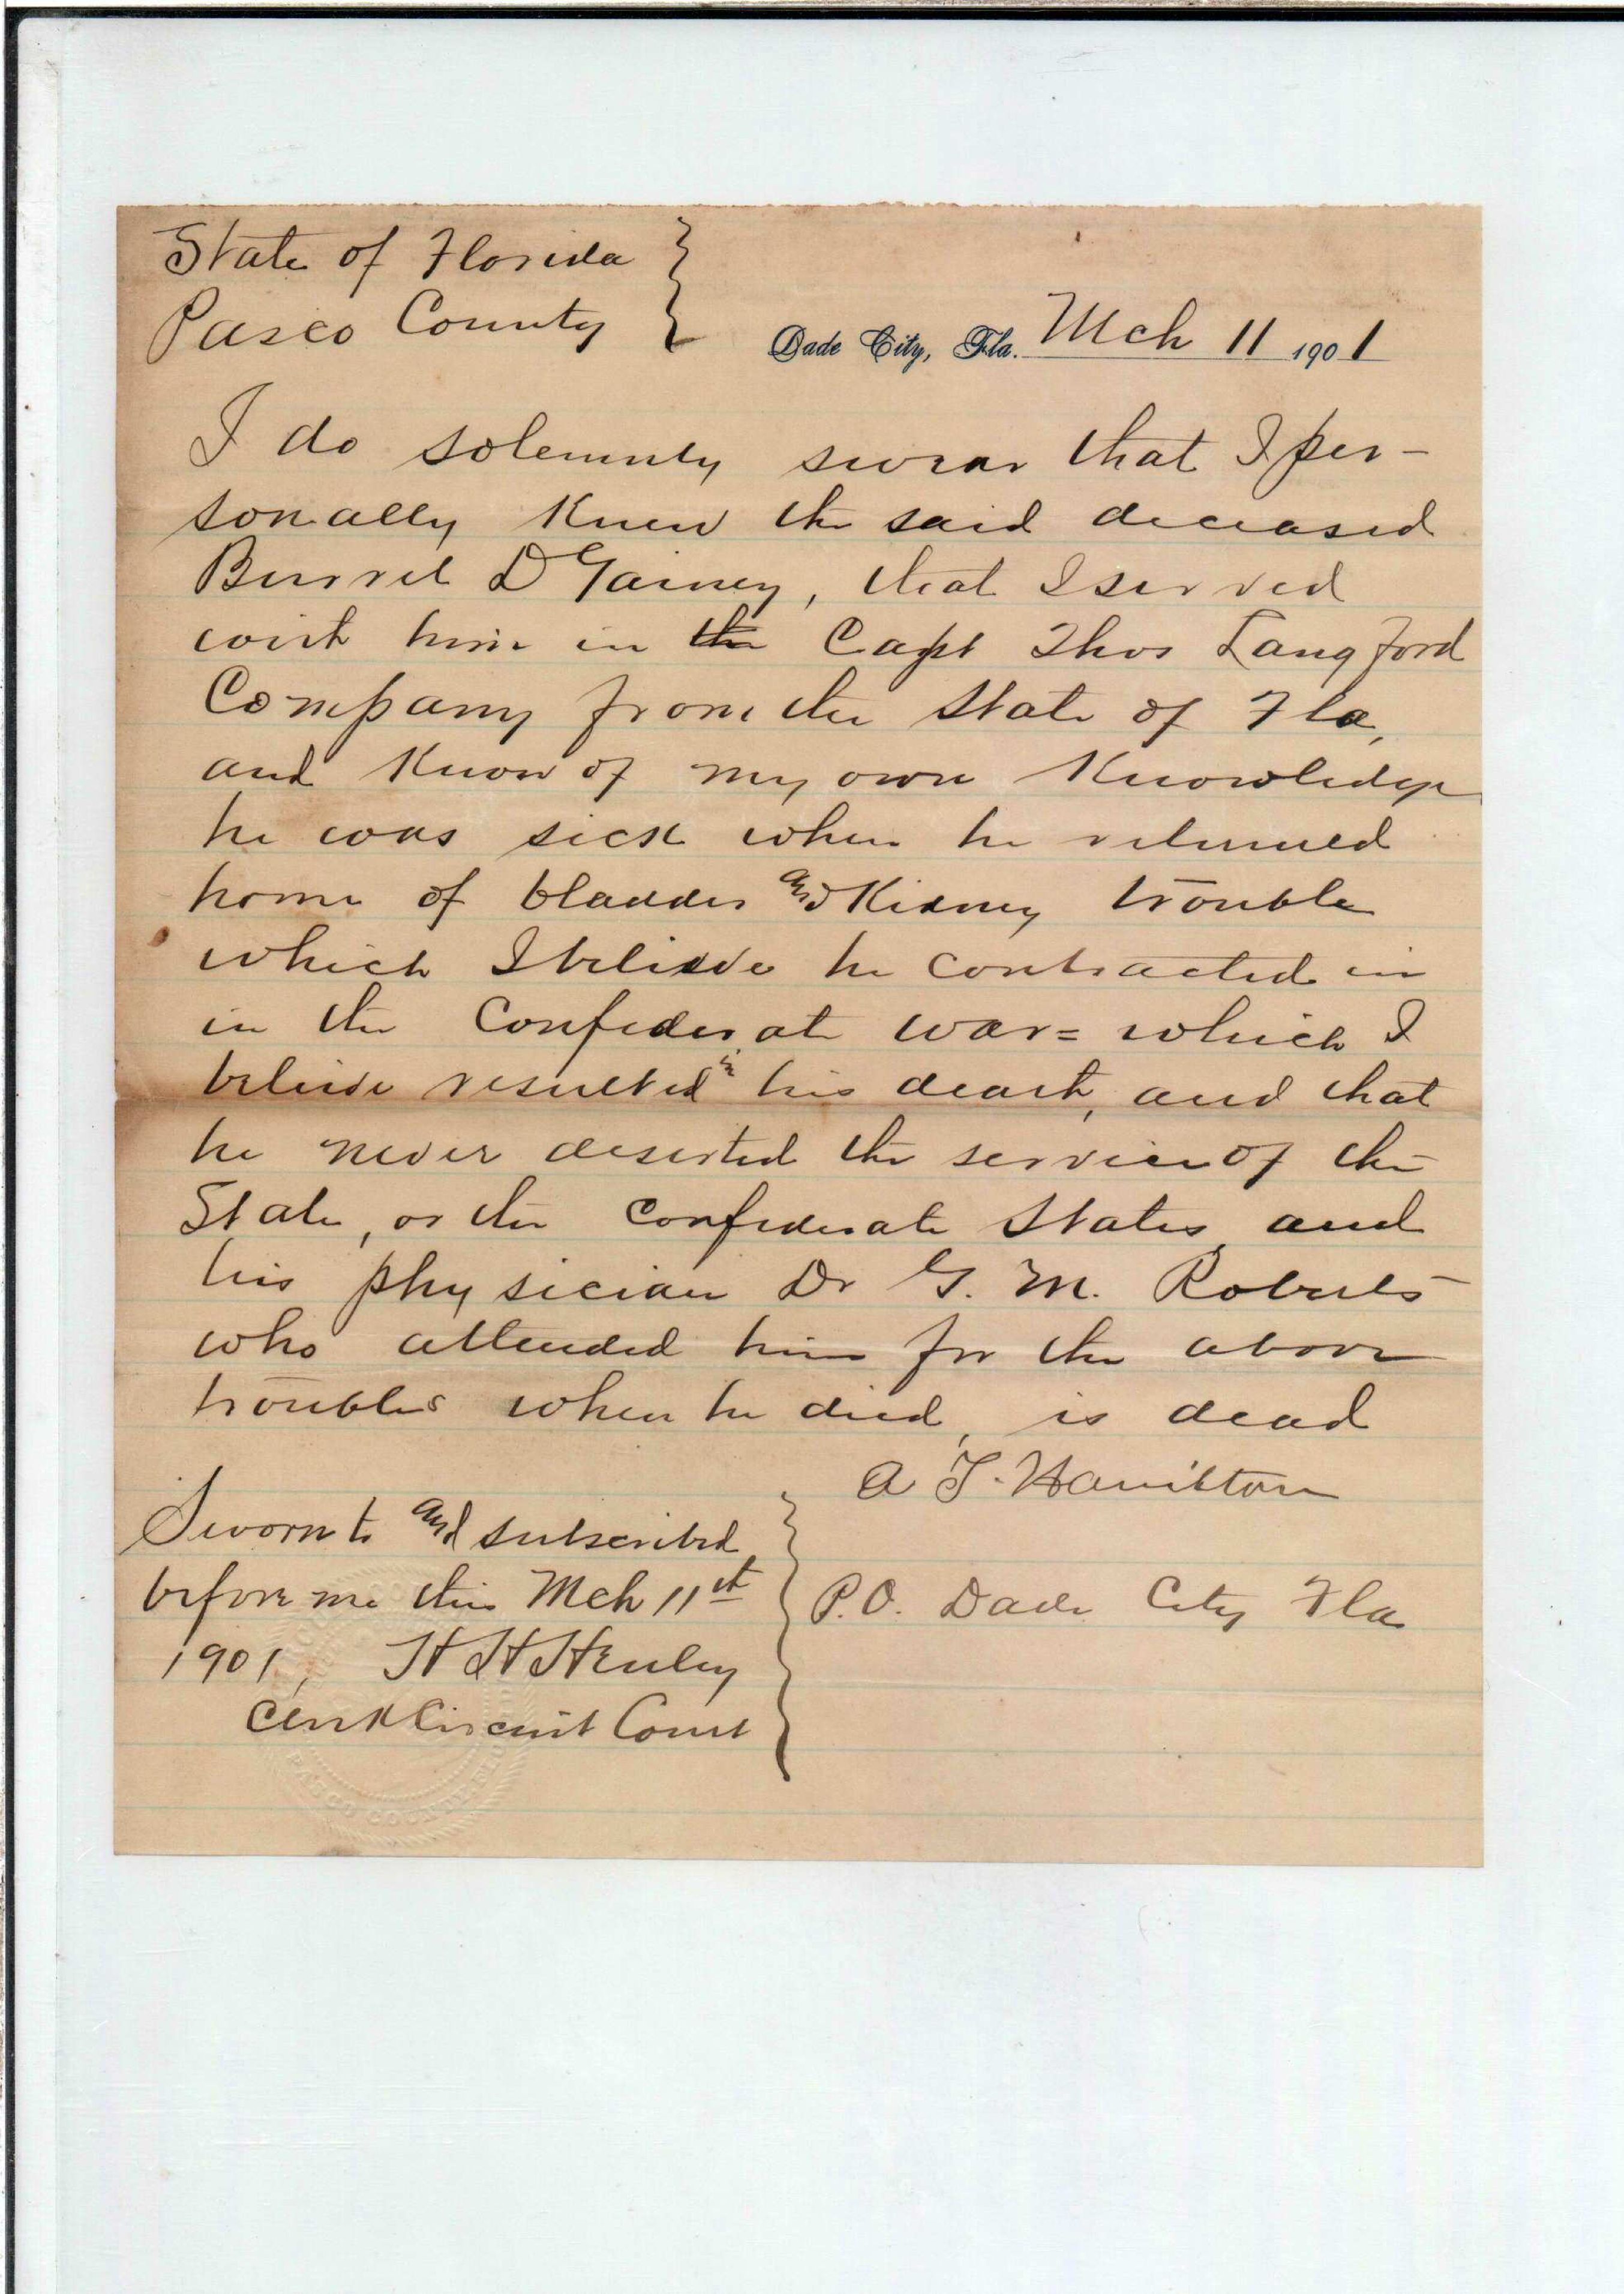 State of Florida }
Pasco County }
Dade City, Fla. Mch 11 1901
I do solemnly swear that I per-
sonally knew the said deceased
Burrel D Gainey, that I served
with him in the Capt Thos Langford
Company from the State of Fla,
and know of my own knowledge
he was sick when he returned
home of bladder and Kidney trouble
which I believe he contracted in
in the Confederate war= which I
believe resulted in his death, and that
he never deserted the service of the
State, or the Confederate States and
his physician Dr G. M. Roberts
who attended him for the above
troubles when he died, is dead
A T. Hamilton
Sworn to and subscribed
before me this Mch 11st
1901, H H Henley
Clerk Circuit Court
P.O. Dade City Fla
PASCO COUNTY